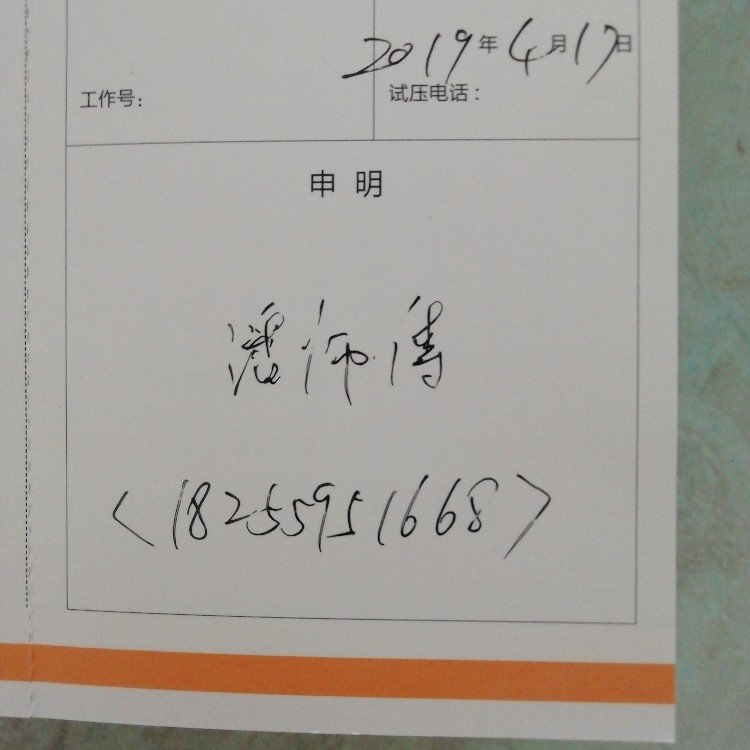 2019年4月17日
工作号：
试压电话：
申明
潘师傅
<18255951668>